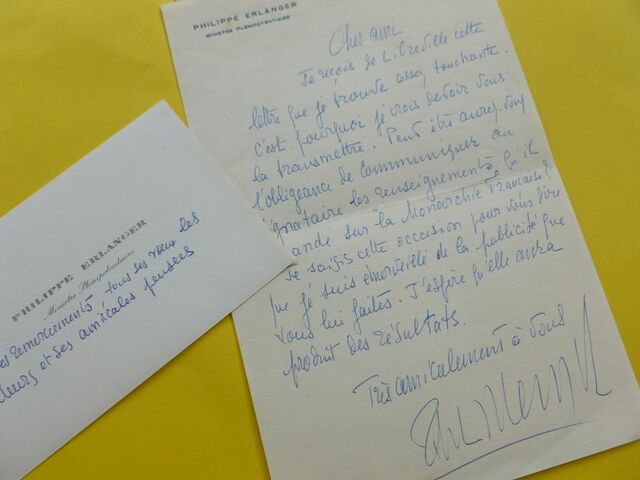 PHILIPPE ERLANGER
MINISTRE PLÉNIPOTENTIAIRE
Cher ami
Je reçois de Libreville cette
lettre que je trouve assez touchante.
c'est pourquoi je crois devoir vous
la transmettre. Peut être aurez-vous
l'obligeance de communiquer au
ignataire les renseignements qu'il
ande sur "la Monarchie Française"?
Je saisis cette occasion pour vous dire
que je suis émerveillé de la publicité que
vous lui faites. J'espère qu'elle aura
produit des résultats.
Très amicalement à vous
PHILIPPE ERLANGER
Ministre Plénipotentiaire
es remerciements tous ses vœux les
lleurs et ses amicales pensées